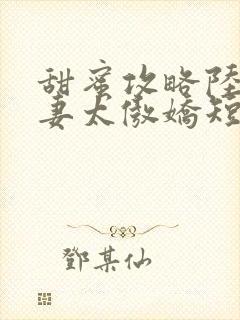 甜蜜攻略陸
妻太傲嬌短
鄧某仙